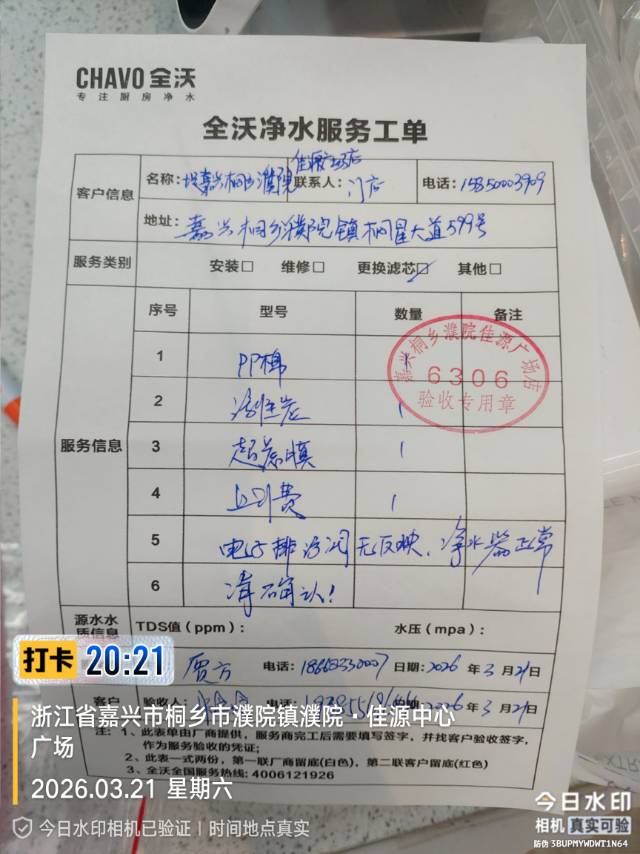 CHAVO 全沃
专注厨房净水
全沃净水服务工单
客户信息
名称：嘉兴桐乡濮院佳源广场店
联系人：门店
电话：15850003909
地址：嘉兴桐乡濮院镇桐星大道599号
服务类别
安装□ 维修□ 更换滤芯☑ 其他□
服务信息
序号 型号 数量 备注
1 PP棉
2 活性炭 1
3 超滤膜 1
4 上门费 1
5 电子排污阀无反映、净水器正常
6 请确认！
嘉兴桐乡濮院佳源广场店
6306
验收专用章
源水水质信息
TDS值（ppm）： 水压（mpa）：
贾方 电话：18662330007 日期：2026年3月21日
客户 验收人： 电话： 日期：2026年3月21日
注：1、此表单由厂商提供，服务商完工后需要填写签字，并找客户验收签字，
作为服务验收的凭证；
2、此表一式两份，第一联厂商留底(白色)，第二联客户留底(红色)
3、全沃全国服务热线：4006121926
打卡 20:21
浙江省嘉兴市桐乡市濮院镇濮院·佳源中心
广场
2026.03.21 星期六
今日水印相机已验证｜时间地点真实
今日水印
相机 真实可验
防伪 3BUPMYWDWT1N64